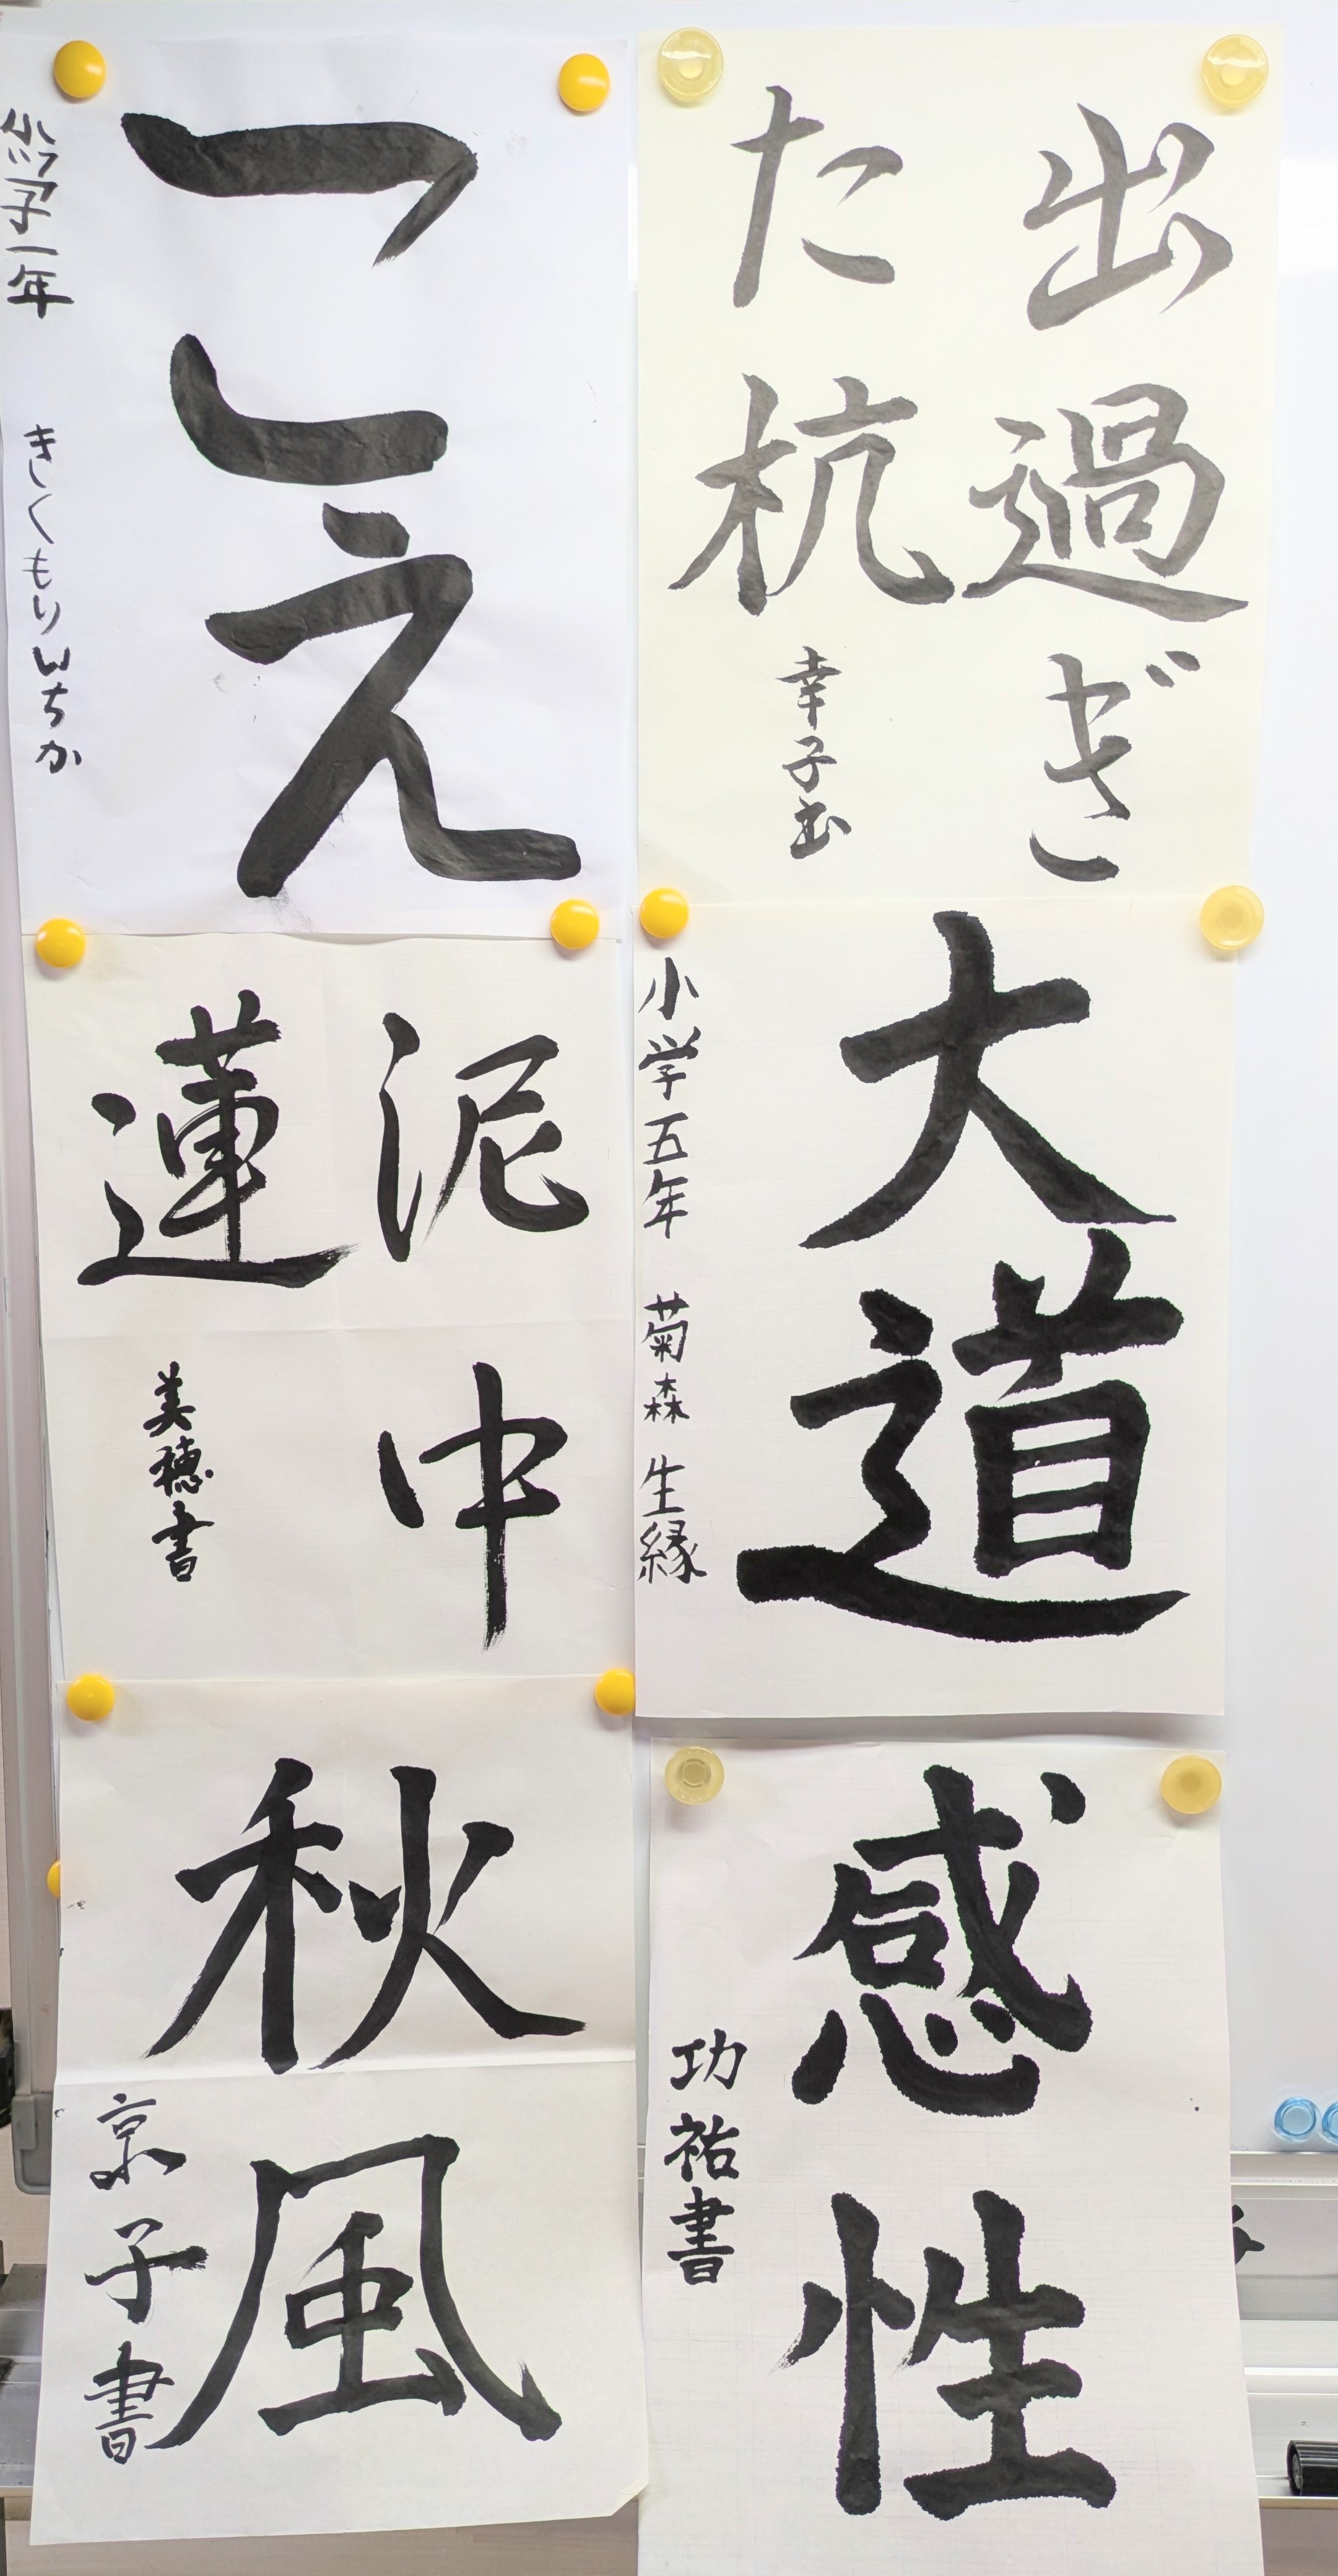 出過ぎ
た杭
幸子書
こえ
小学一年 きくもりいちか
大道
小学五年 菊森 生縁
泥中
蓮
美穂書
感性
功祐書
秋風
京子書